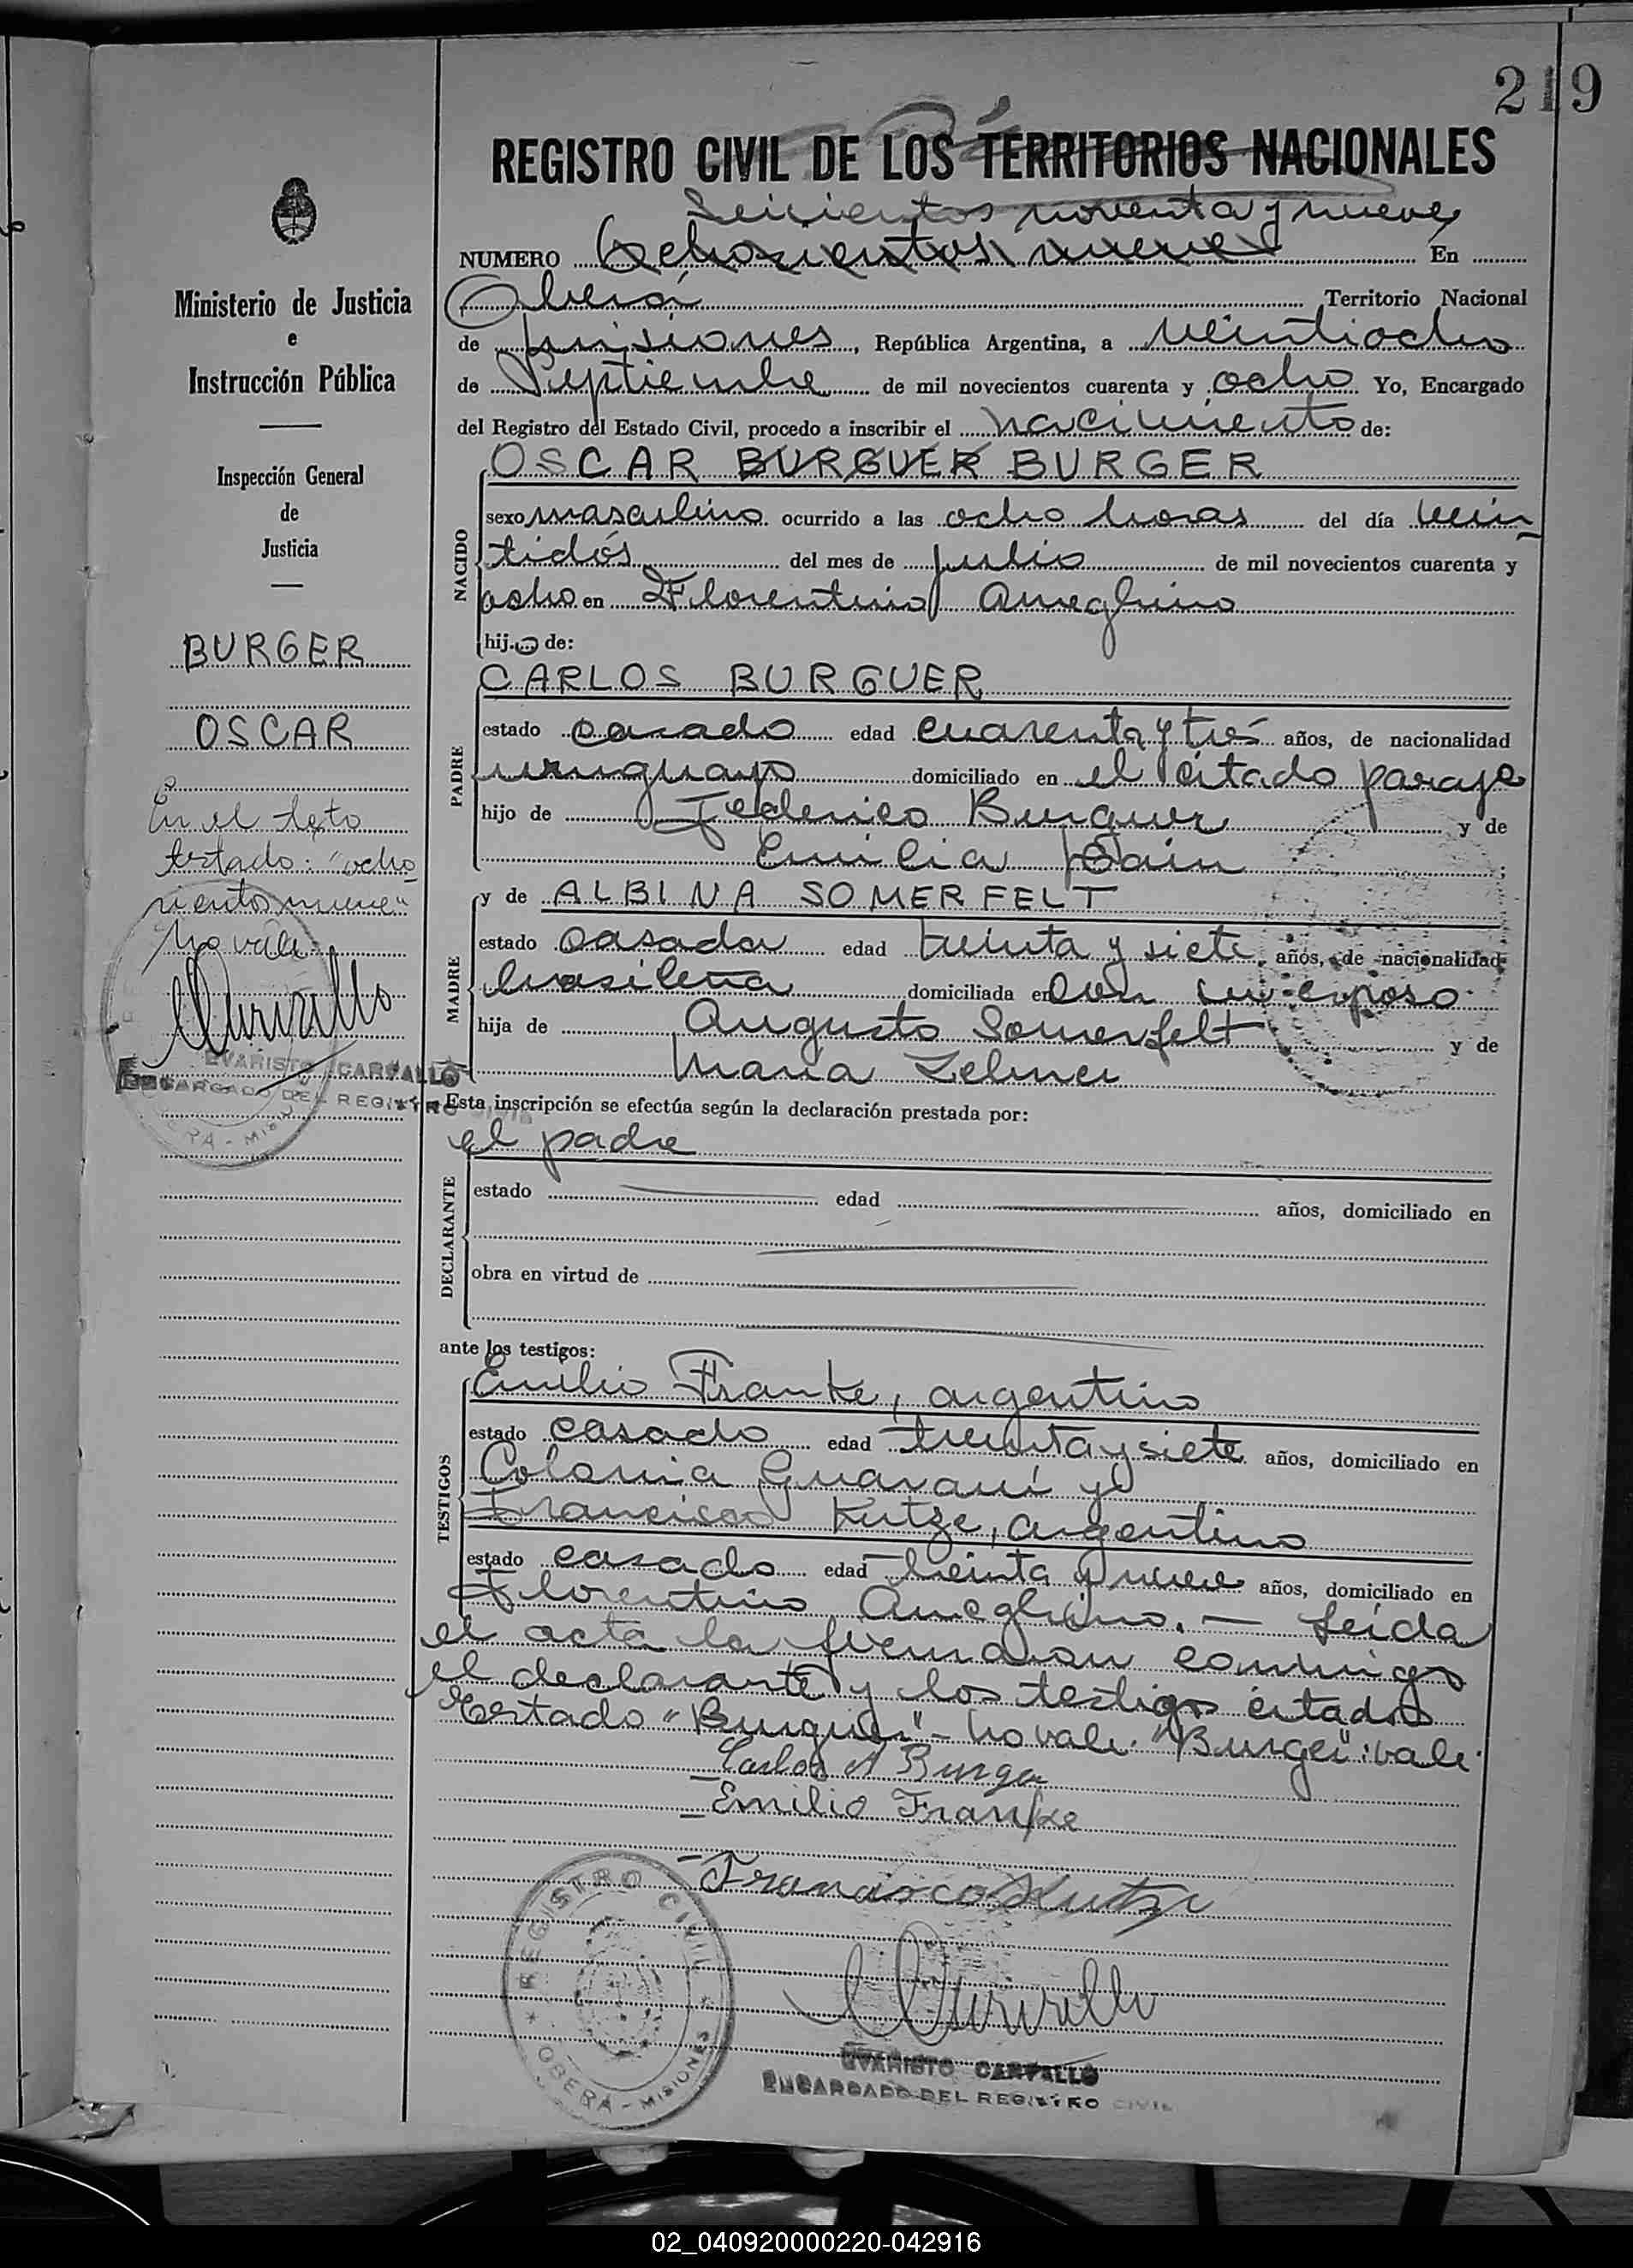 219
REGISTRO CIVIL DE LOS TERRITORIOS NACIONALES
Seiscientos noventa y nueve
NUMERO Ochoscientos nueve En
Oberá Territorio Nacional
de Misiones, República Argentina, a veintiocho
de Septiembre de mil novecientos cuarenta y ocho Yo, Encargado
del Registro del Estado Civil, procedo a inscribir el nacimiento de:
OSCAR BURGUER BURGER
NACIDO
sexo masculino ocurrido a las ocho horas del día vein-
tidós del mes de julio de mil novecientos cuarenta y
ocho en Florentino Ameghino
hijo de:
CARLOS BURGUER
PADRE
estado casado edad cuarenta y tres años, de nacionalidad
uruguayo domiciliado en el citado paraje
hijo de Federico Burguer y de
Emilia
y de ALBINA SOMERFELT
MADRE
estado casada edad treinta y siete años, de nacionalidad
brasileña domiciliada en con su esposo
hija de Augusto Somerfelt y de
María
Esta inscripción se efectúa según la declaración prestada por:
el padre
DECLARANTE
estado edad años, domiciliado en
obra en virtud de
ante los testigos:
TESTIGOS
Emilio Franke, argentino
estado casado edad treinta y siete años, domiciliado en
Colonia Guaraní y
Francisco Kutze, argentino
estado casado edad treinta y nueve años, domiciliado en
Florentino Ameghino. — Leída
el acta la firmaron conmigo
el declarante y los testigos citados
Testado "Burguer" - no vale. "Burger": vale.
Carlos A Burger
Emilio Franke
Francisco Kutze
REGISTRO CIVIL
OBERÁ - MISIONES
EVARISTO CARVALLO
ENCARGADO DEL REGISTRO CIVIL
Ministerio de Justicia
e
Instrucción Pública
Inspección General
de
Justicia
BURGER
OSCAR
En el texto
testado: "ocho
cientos nueve"
no vale
EVARISTO CARVALLO
ENCARGADO DEL REGISTRO CIVIL
02_040920000220-042916